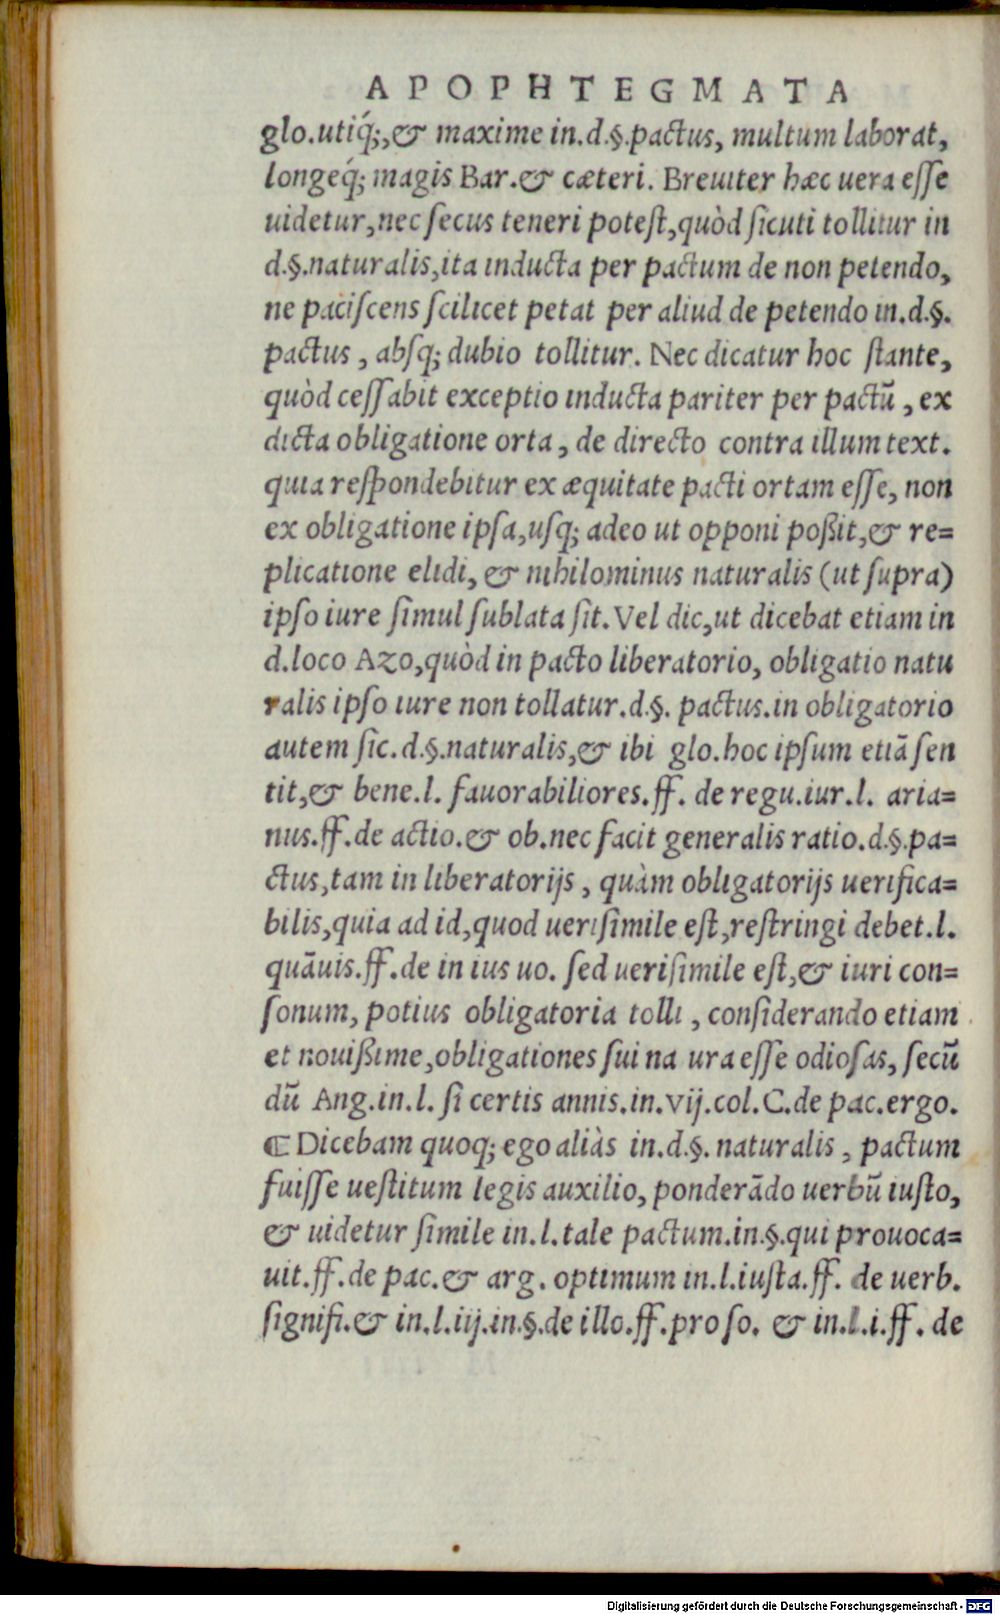 APOPHTEGMATA
glo.utiq́;,& maxime in.d.§.pactus, multum laborat,
longeq́; magis Bar.& cæteri. Breuiter hæc uera eſſe
uidetur,nec ſecus teneri poteſt,quòd ſicuti tollitur in
d.§.naturalis,ita inducta per pactum de non petendo,
ne paciſcens ſcilicet petat per aliud de petendo in.d.§.
pactus , abſq; dubio tollitur. Nec dicatur hoc ſtante,
quòd ceſſabit exceptio inducta pariter per pactū , ex
dicta obligatione orta , de directo contra illum text.
quia reſpondebitur ex æquitate pacti ortam eſſe, non
ex obligatione ipſa,uſq; adeo ut opponi poßit,& re=
plicatione elidi, & nihilominus naturalis (ut ſupra)
ipſo iure ſimul ſublata ſit. Vel dic,ut dicebat etiam in
d.loco Azo,quòd in pacto liberatorio, obligatio natu
ralis ipſo iure non tollatur.d.§. pactus.in obligatorio
autem ſic.d.§.naturalis,& ibi glo.hoc ipſum etiā ſen
tit,& bene.l. fauorabiliores.ff. de regu.iur.l. aria=
nus.ff.de actio.& ob.nec facit generalis ratio.d.§.pa=
ctus,tam in liberatorijs , quàm obligatorijs uerifica=
bilis,quia ad id,quod ueriſimile eſt,reſtringi debet.l.
quāuis.ff.de in ius uo. ſed ueriſimile eſt,& iuri con=
ſonum, potius obligatoria tolli , conſiderando etiam
et nouißime,obligationes ſui na ura eſſe odioſas, ſecū
dū Ang.in.l. ſi certis annis.in.vij.col.C.de pac.ergo.
¶ Dicebam quoq; ego aliàs in.d.§. naturalis , pactum
fuiſſe ueſtitum legis auxilio, ponderādo uerbū iuſto,
& uidetur ſimile in.l.tale pactum.in.§.qui prouoca=
uit.ff.de pac.& arg. optimum in.l.iuſta.ff. de uerb.
ſignifi.& in.l.iij.in.§.de illo.ff.pro ſo. & in.l.i.ff. de
Digitalisierung gefördert durch die Deutsche Forschungsgemeinschaft - DFG